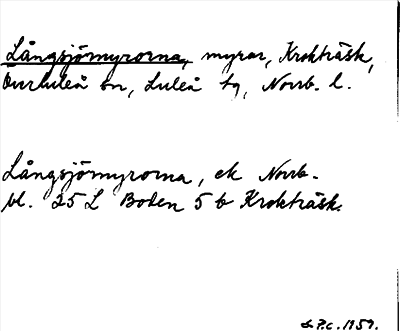 Långsjömyrorna, myrar, Krokträsk,
Överluleå sn, Luleå tg, Norrb. l.
Långsjömyrorna, ek Norrb.
bl. 25 L Boden 5 b Krokträsk.
& P.c. 1959.